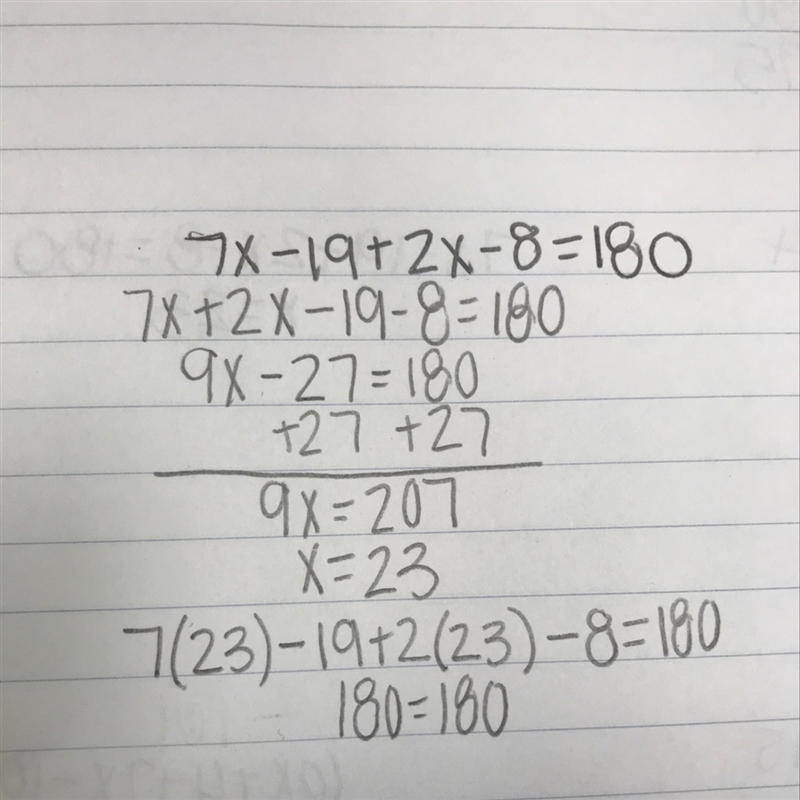 7x-19+2x-8=180
7x+2x-19-8=180
9x-27=180
+27 +27
9x=207
x=23
7(23)-19+2(23)-8=180
180=180